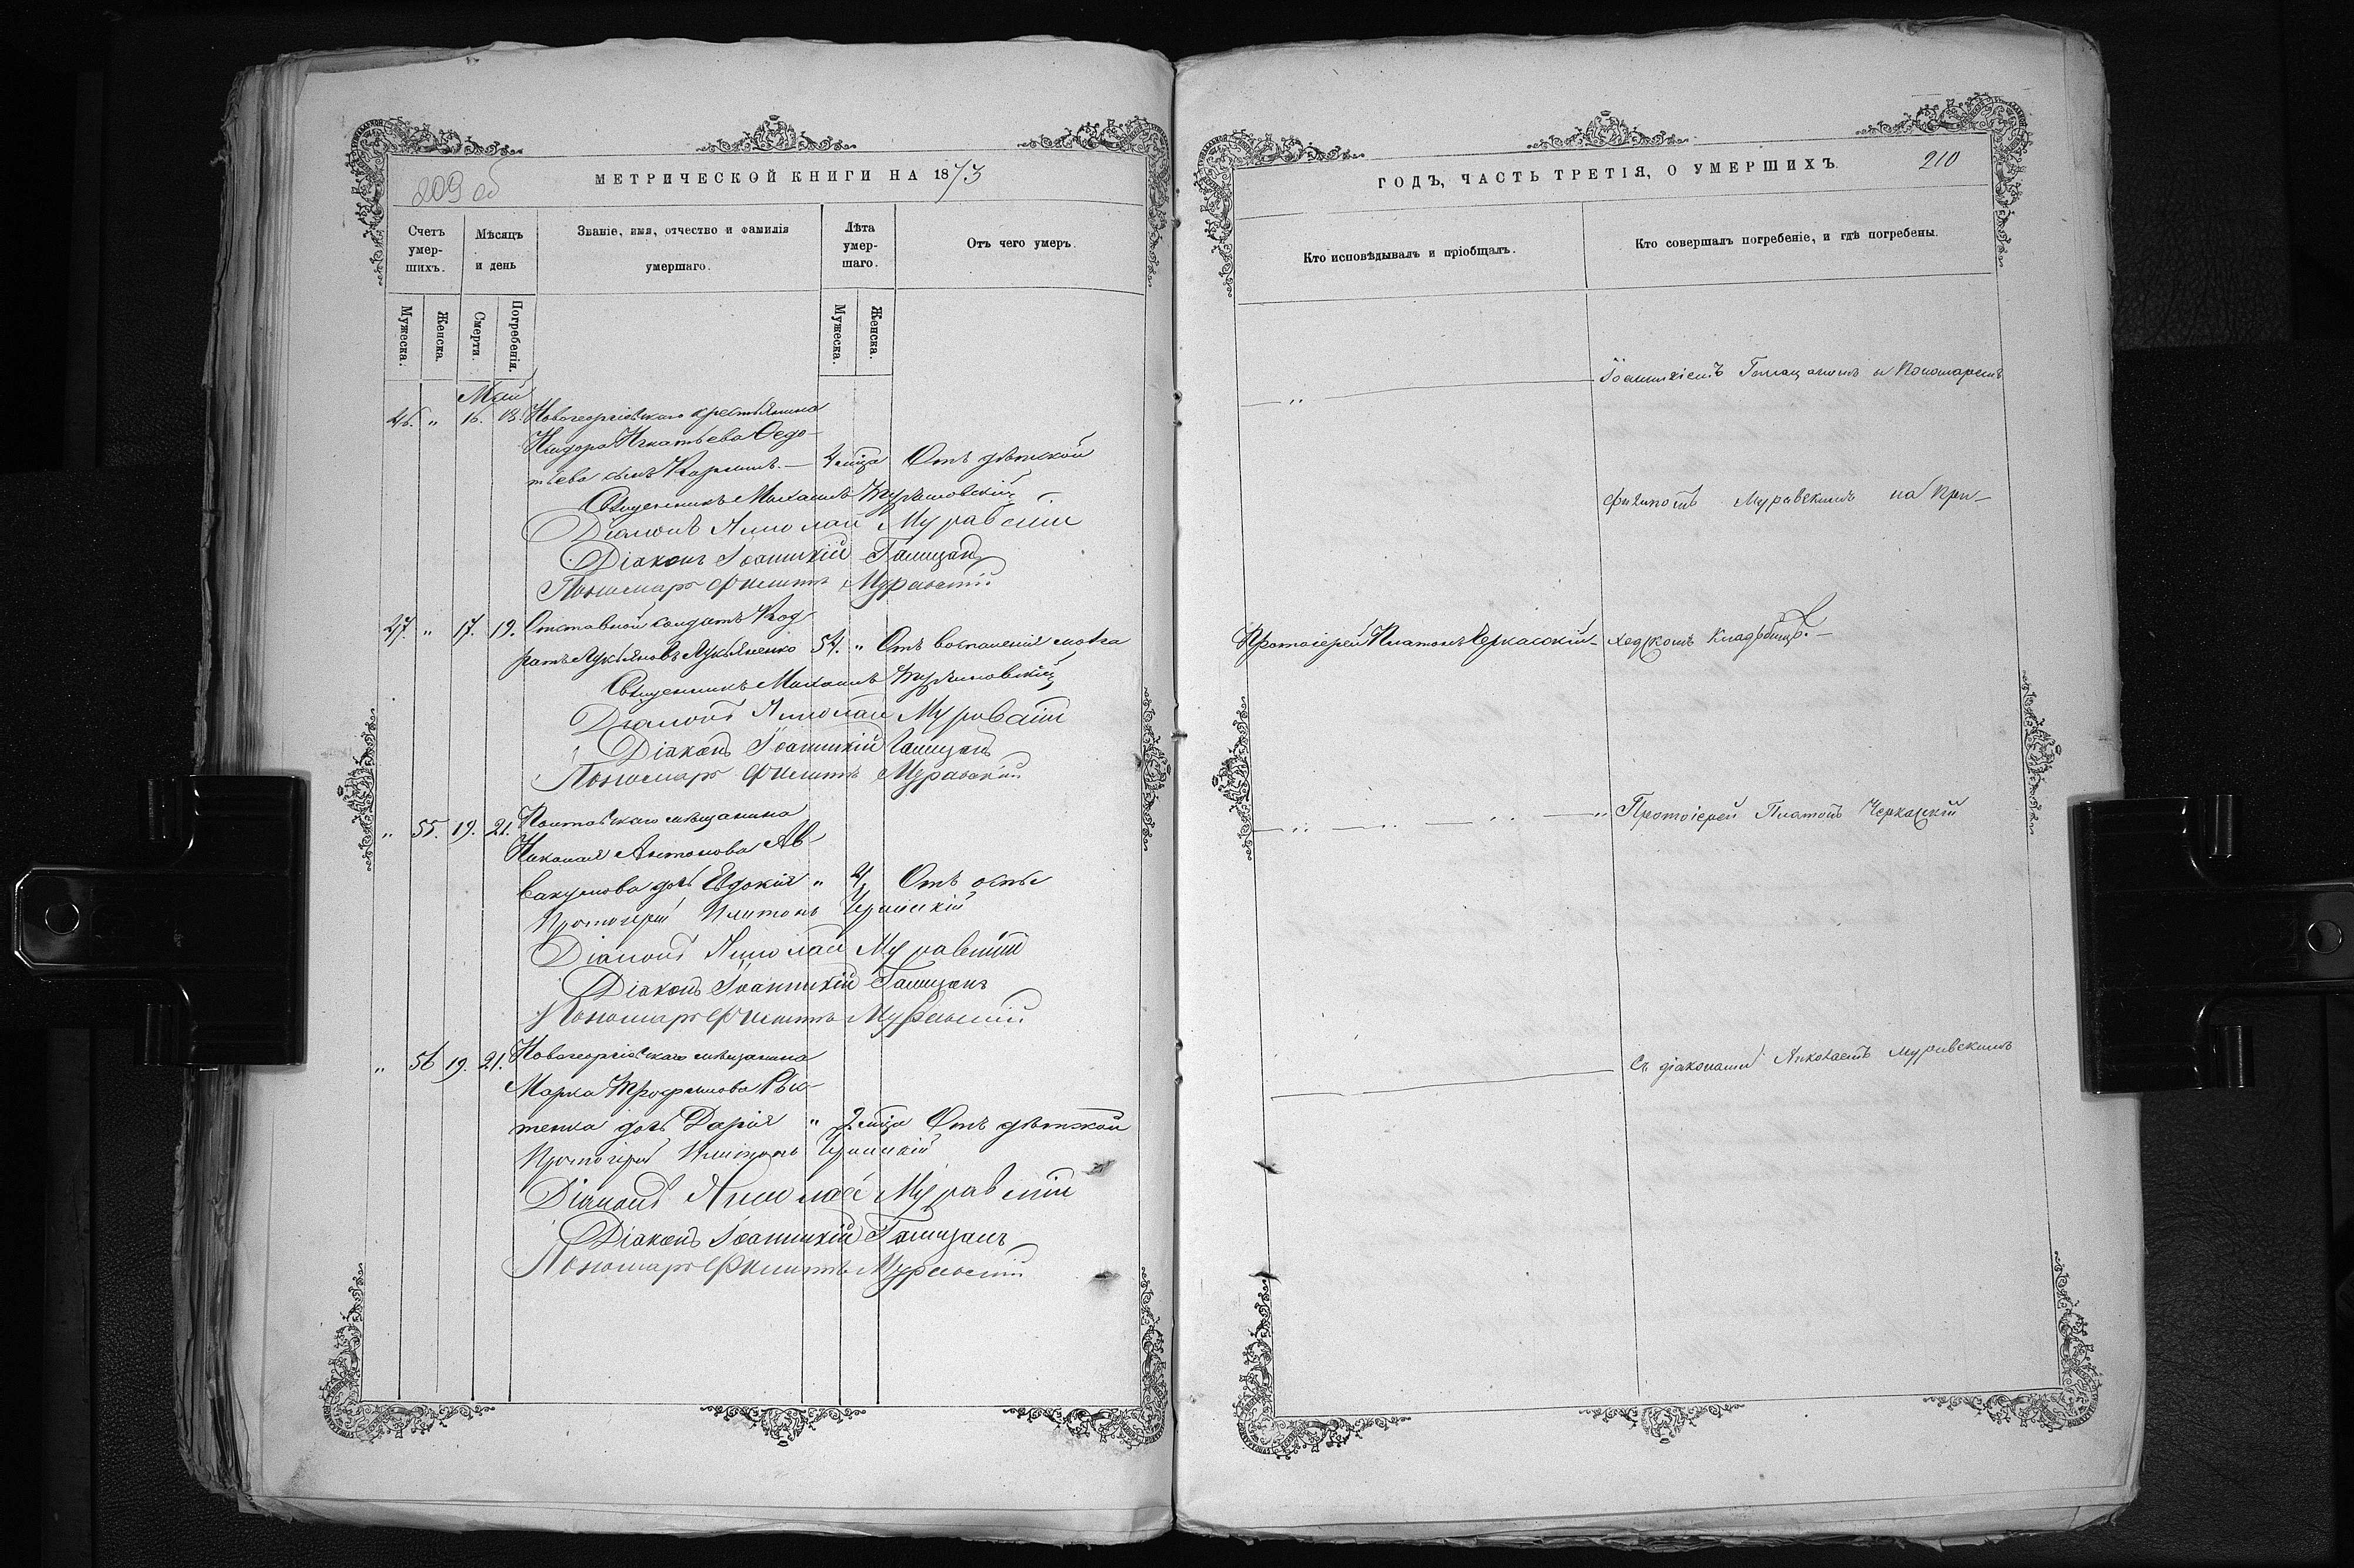 209 об
МЕТРИЧЕСКОЙ КНИГИ НА 1873
Счетъ умер-шихъ.
Мѣсяцъ и день
Званіе, имя, отчество и фамилія умершаго.
Лѣта умер-шаго.
Отъ чего умеръ.
Мужеска.
Женска.
Смерти.
Погребенія.
Мужеска.
Женска.
Май
46. " 16. 18. Новогеоргіевскаго крестьянина
Игнатьева Ѳедо-
тьева сынъ 4 мѣца Отъ дѣтской
Священникъ Михаилъ
Діаконъ Николай Муравскій
Діаконъ Іоанникій Галицанъ
Пономарь Филиппъ Муравскій
47. " 17. 19. Отставной солдатъ Код-
ратъ Лукьяновъ Лукьяненко 54. " Отъ воспаленія мозга
Священникъ Михаилъ
Діаконъ Николай Муравскій
Діаконъ Іоанникій Галицанъ
Пономарь Филиппъ Муравскій
" 55. 19. 21. Полтавскаго мѣщанина
Николая Антонова Ав-
вакумова дочь Евдокія " 4 Отъ оспы
Протоіерей Платонъ Черкаскій
Діаконъ Николай Муравскій
Діаконъ Іоанникій Галицанъ
Пономарь Филиппъ Муравскій
" 56 19. 21. Новогеоргіевскаго мѣщанина
Марка Трофимова
тенка дочь Дарія " 2 мѣца Отъ дѣтской
Протоіерей Платонъ Черкаскій
Діаконъ Николай Муравскій
Діаконъ Іоанникій Галицанъ
Пономарь Филиппъ Муравскій
ГОДЪ, ЧАСТЬ ТРЕТІЯ, О УМЕРШИХЪ.
210
Кто исповѣдывалъ и пріобщалъ.
Кто совершалъ погребеніе, и гдѣ погребены.
Іоанникіемъ Галицаномъ и Пономаремъ
Филипомъ Муравскимъ на При-
Протоіерей Платонъ Черкасскій ходскомъ кладбищѣ.
Протоіерей Платонъ Черкаскій
Съ діаконами Николаемъ Муравскимъ